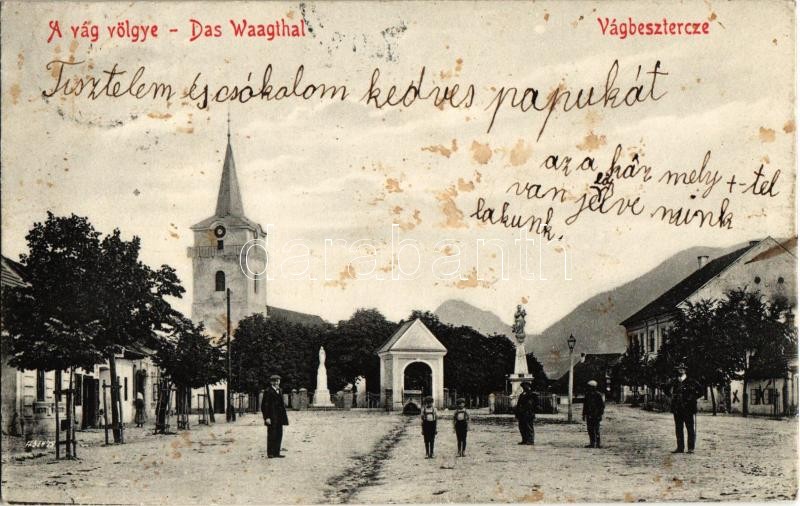 A vág völgye - Das Waagthal
Vágbesztercze
Tisztelem és csókalom kedves papukát
az a ház mely + tel
van jelve mink
lakunk.
darabanth